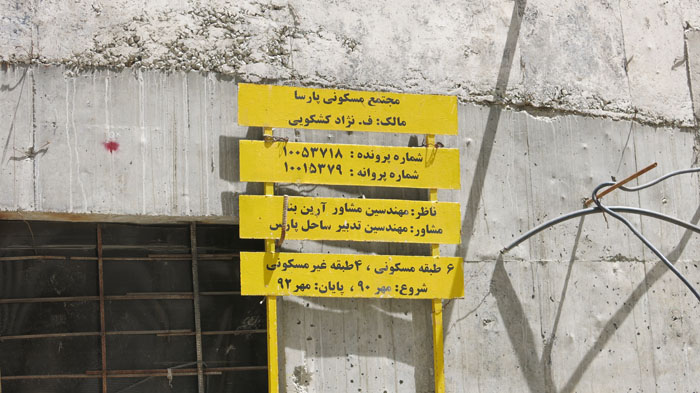 مجتمع مسکونی پارسا
مالک: ف. نژاد کشکویی
شماره پرونده : ۱۰۰۵۳۷۱۸
شماره پروانه : ۱۰۰۱۵۳۷۹
ناظر: مهندسین مشاور آرین بنا
مشاور: مهندسین تدبیر ساحل پارس
۶ طبقه مسکونی ، ۴طبقه غیرمسکونی
شروع: مهر ۹۰ ، پایان: مهر۹۲